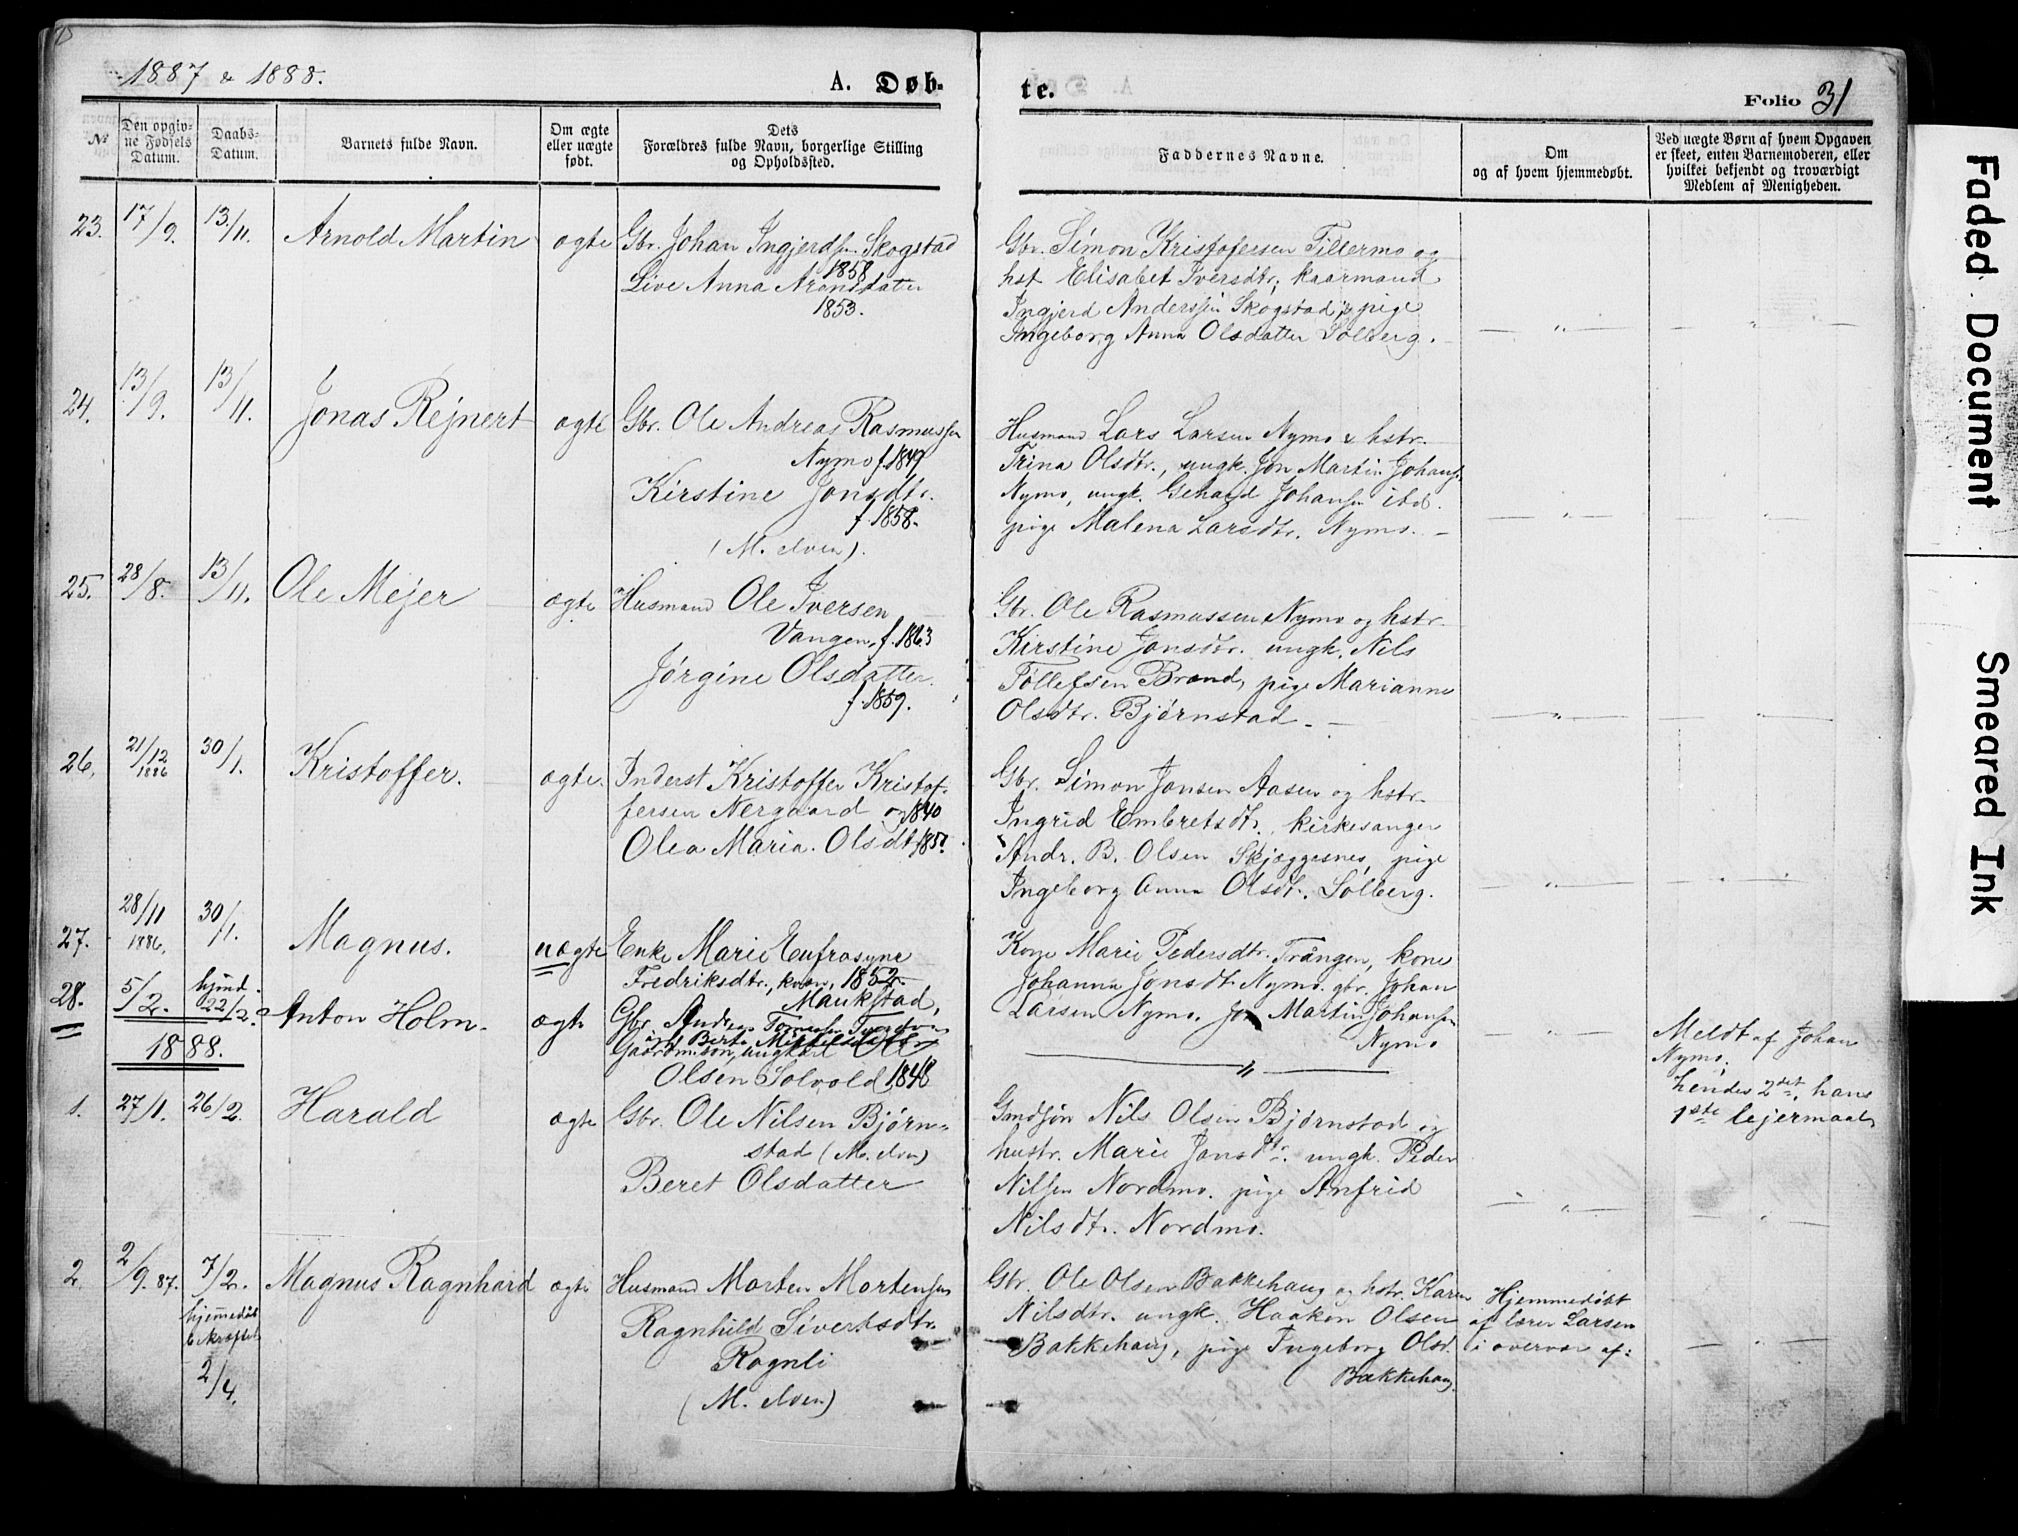 1887 & 1888.
A. Døb-
te.
Folio 31
№
Den opgiv-
ne Fødsels
Datum.
Daabs-
Datum.
Barnets fulde Navn.
Om ægte
eller uægte
født.
Dets
Forældres fulde Navn, borgerlige Stilling
og Opholdssted.
Faddernes Navne.
Om
og af hvem hjemmedøbt.
Ved uægte Børn af hvem Opgaven
er skeet, enten Barnemoderen, eller
hvilket bekjendt og troværdigt
Medlem af Menigheden.
23. 17/9. 13/11. Arnold Martin ægte
Gbr. Johan Ingjerds. Skogstad
1858
Live Anna Aronsdatter
1853.
Gbr. Simon Kristofersen Tillermo og
hst Elisabet Iversdtr, kaarmand
Ingjerd Anderssen Skogstad, pige
Ingeborg Anna Olsdatter Solberg.
24. 13/9. 13/11. Jonas Rejnert ægte
Gbr. Ole Andreas Rasmussen
Nymo f. 1849
Kirstine Jonsdtr.
f. 1858.
(M. elven).
Husmand Lars Larsen Nymo & hstr.
Trina Olsdtr., ungk. Jon Martin Johans.
Nymo, ungk. Gehard Johansen ibd.
pige Malena Larsdtr. Nymo.
25. 28/8. 13/11. Ole Mejer ægte
Husmand Ole Iversen
Vangen, f. 1863
Jørgine Olsdatter
f. 1859.
Gbr. Ole Rasmussen Nymo og hstr.
Kirstine Jonsdtr. ungk. Nils
Tollefsen Brand, pige Marianne
Olsdtr. Bjørnstad.
26. 21/12 1886 30/1. Kristoffer. ægte.
Inderst Kristoffer Kristof-
fersen Nergaard og 1840
Olea Maria Olsdt. 1857.
Gbr. Simon Jonsen Aasen og hstr.
Ingrid Embretsdt. kirkesanger
Andr. B. Olsen Skjæggesnes, pige
Ingeborg Anna Olsdt. Solberg.
27. 28/11 1886. 30/1. Magnus. uægte
Enke Marie Eufrosyne
Fredriksdtr., 1852
Maukstad,
Gaardmandsøn, ungkarl Ole
Olsen Solvold, 1848
Kone Marie Pedersdtr. Trången, kone
Johanna Jonsdt. Nymo, gbr. Johan
Larsen Nymo, Jon Martin Johansen
Nymo
Meldt af Johan
Nymo,
hendes 2det, hans
1ste lejermaal
28. 5/2. hjmd. 22/2. Anton Holm. ægte
Gbr. Andreas
og Berte Mikkelsdatter
1888.
1. 27/1. 26/2. Harald ægte
Gbr. Ole Nilsen Bjørn-
stad (M. elven)
Beret Olsdatter
Gmdsøn Nils Olsen Bjørnstad og
hustr. Marie Jonsdtr. ungk. Peder
Nilsen Nordmo. pige Anfrid
Nilsdt. Nordmo.
2. 2/9. 87. 7/2. Magnus Ragnhard ægte
hjemmedåb
bekræftet
2/4.
Husmand Morten Mortensen
Ragnhild Sivertsdtr.
Rognli
(M. elven)
Gbr. Ole Olsen Bakkehaug og hstr. Karen
Nilsdtr. ungk. Haakon Olsen
Bakkehaug, pige Ingeborg Olsd.
Bakkehaug.
Hjemmedøbt
af lærer Larsen
i overvær af:
Faded Document
Smeared Ink